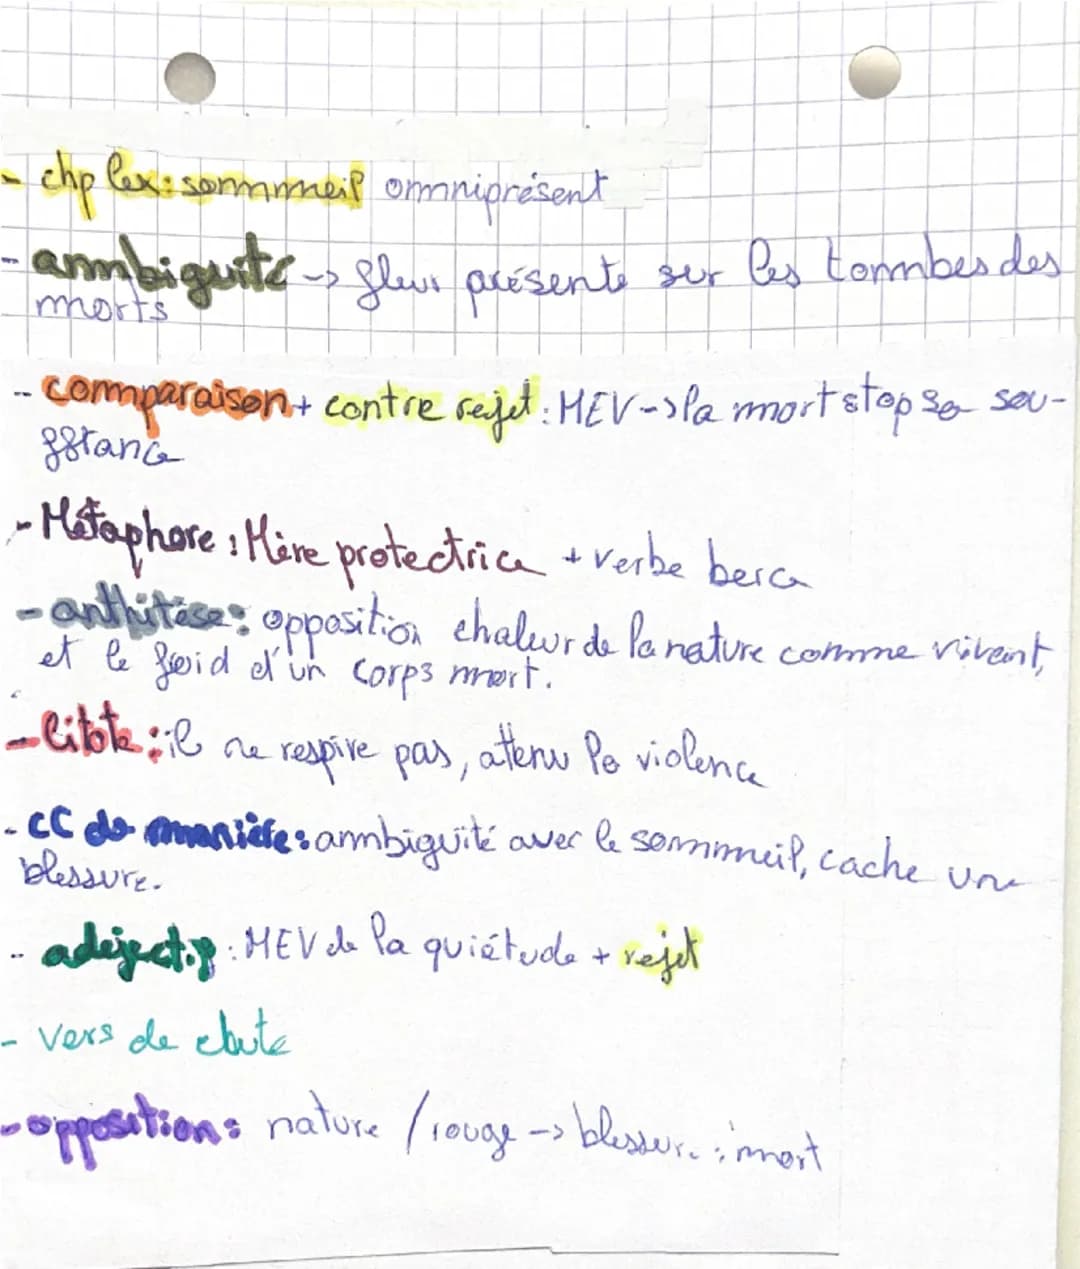 - chp lex: sommmeil omniprésent
- ambiguité -> fleur présente sur les tombes des
morts
- comparaison + contre rejet : MEV -> la mort stop sa sou-
ffrance
- Métaphore : Mère protectrice + verbe berce
- anthitèse : opposition chaleur de la nature comme vivant,
et le froid d'un corps mort.
- litote : il ne respire pas, attenu la violence
- CC de manière : ambiguïté avec le sommmeil, cache une
blessure.
- adejectif : MEV de la quiétude + rejet
- vers de chute
- opposition : nature / rouge -> blessure ; mort